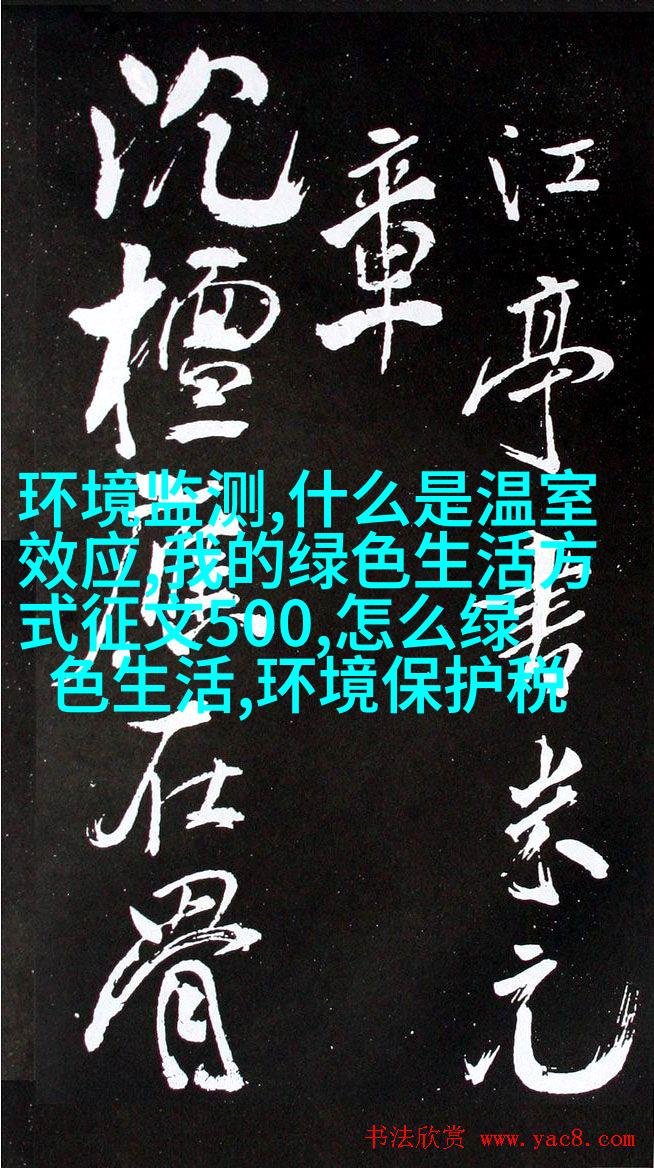 江亭書米元
章
沉檀在骨
环境监测,什么是温室
效应,我的绿色生活方
式征文500,怎么绿
色生活,环境保护税
书法欣赏 www.yac8.com